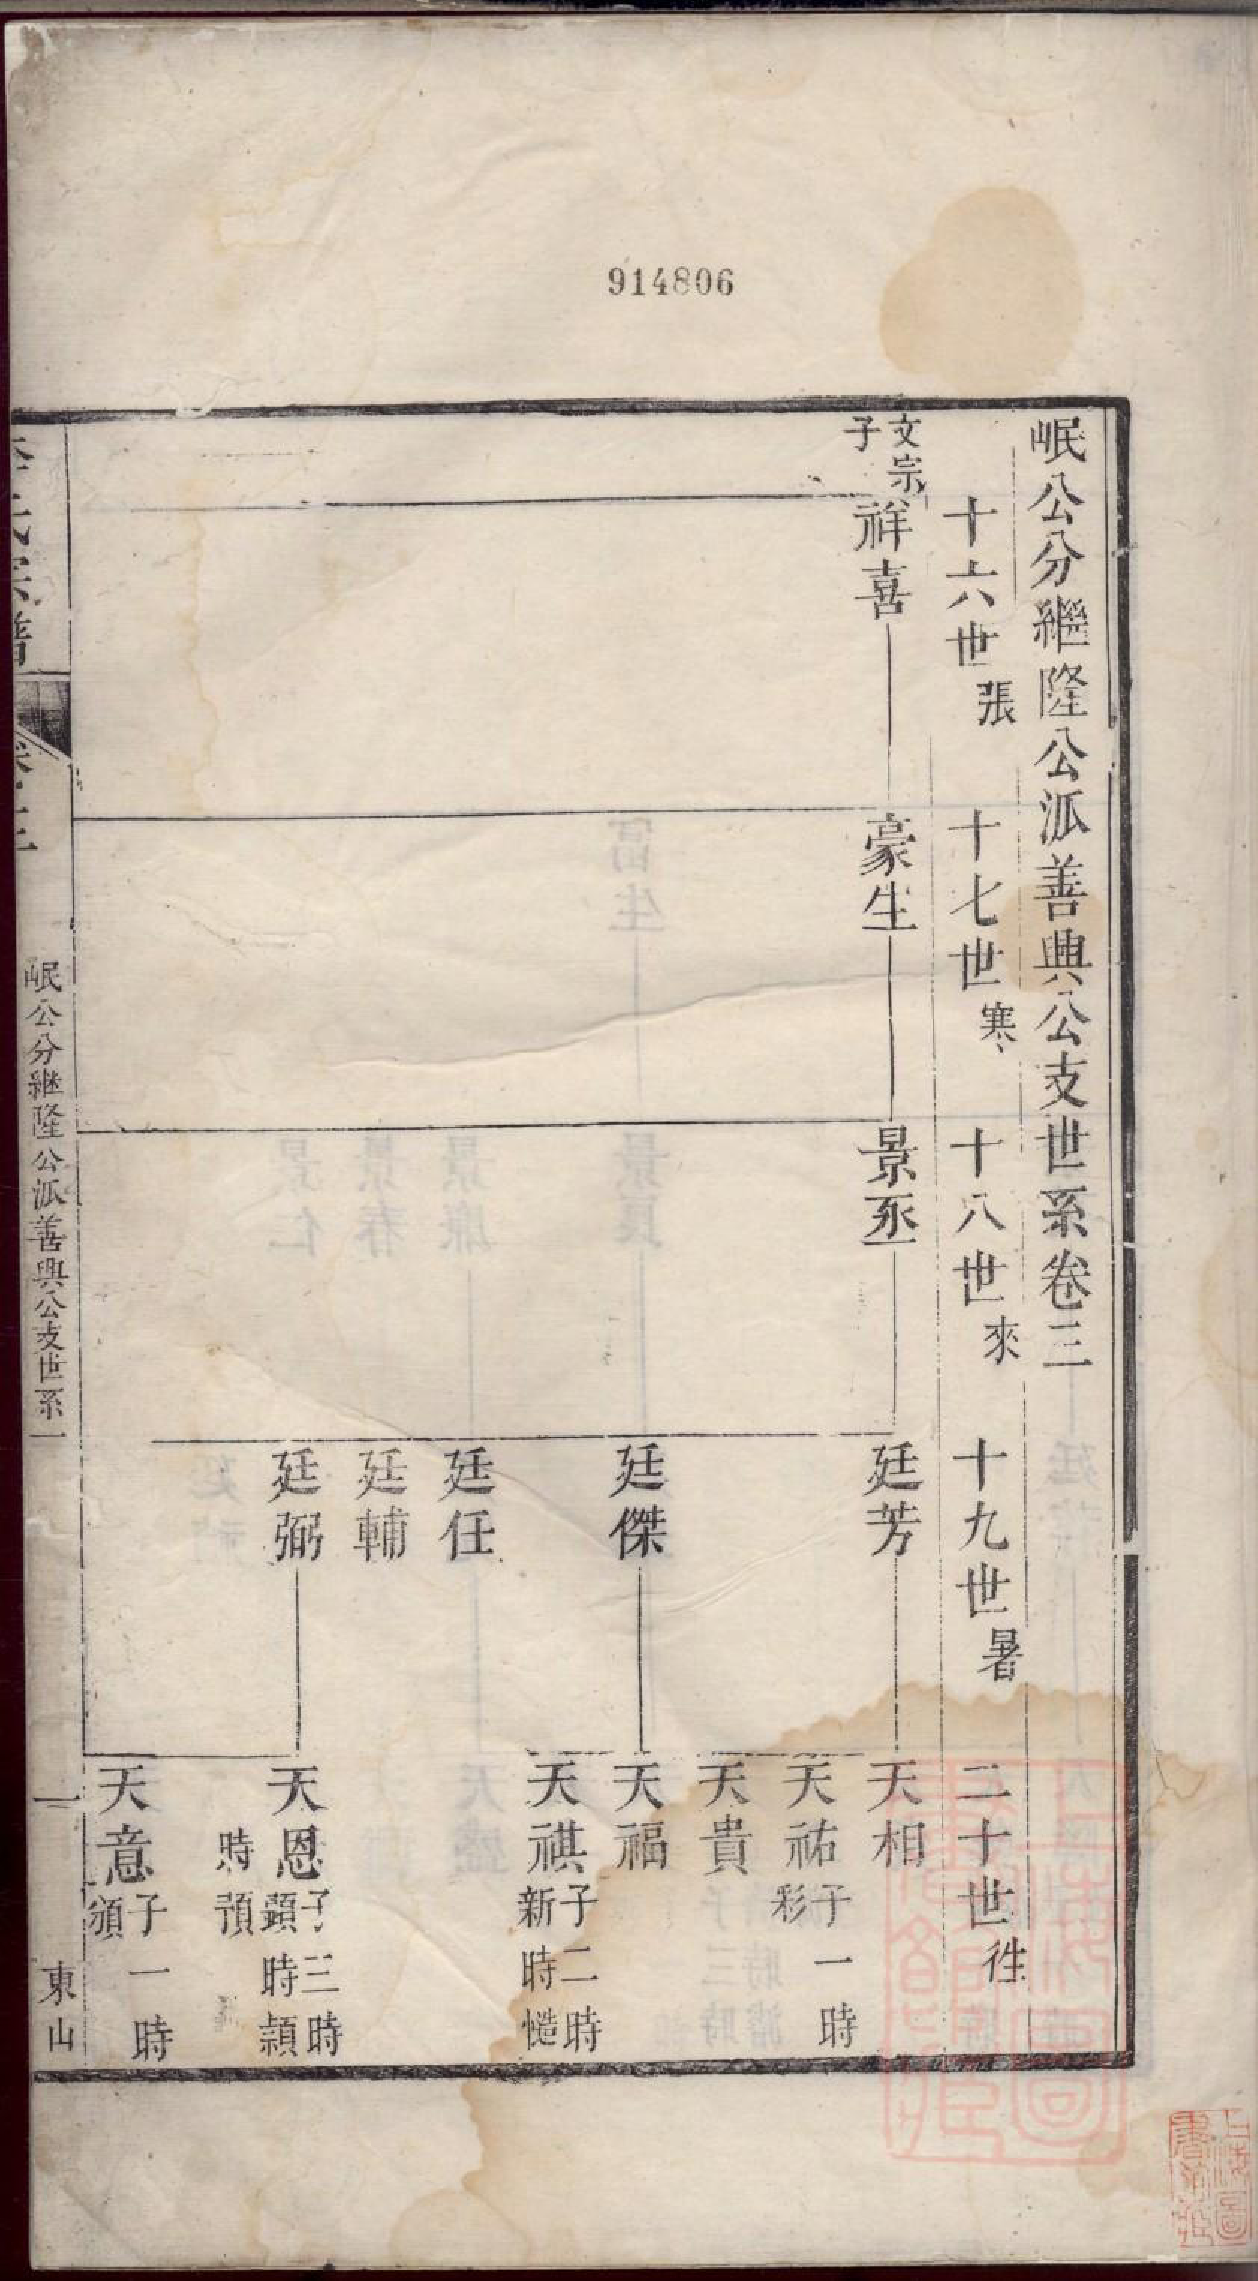 914806
岷公分繼隆公派善興公支世系卷三
十六世張
十七世寒
十八世來
十九世暑
二十世徃
文宗子
祥喜
豪生
景丞
廷芳
廷傑
廷任
廷輔
廷弼
天相
天祐子一時彩
天貴
天福
天祺子二時新時慥
天恩子三時顕時頴時預
天意子一時頒
岷公分継隆公派善興公支世系
一
東山